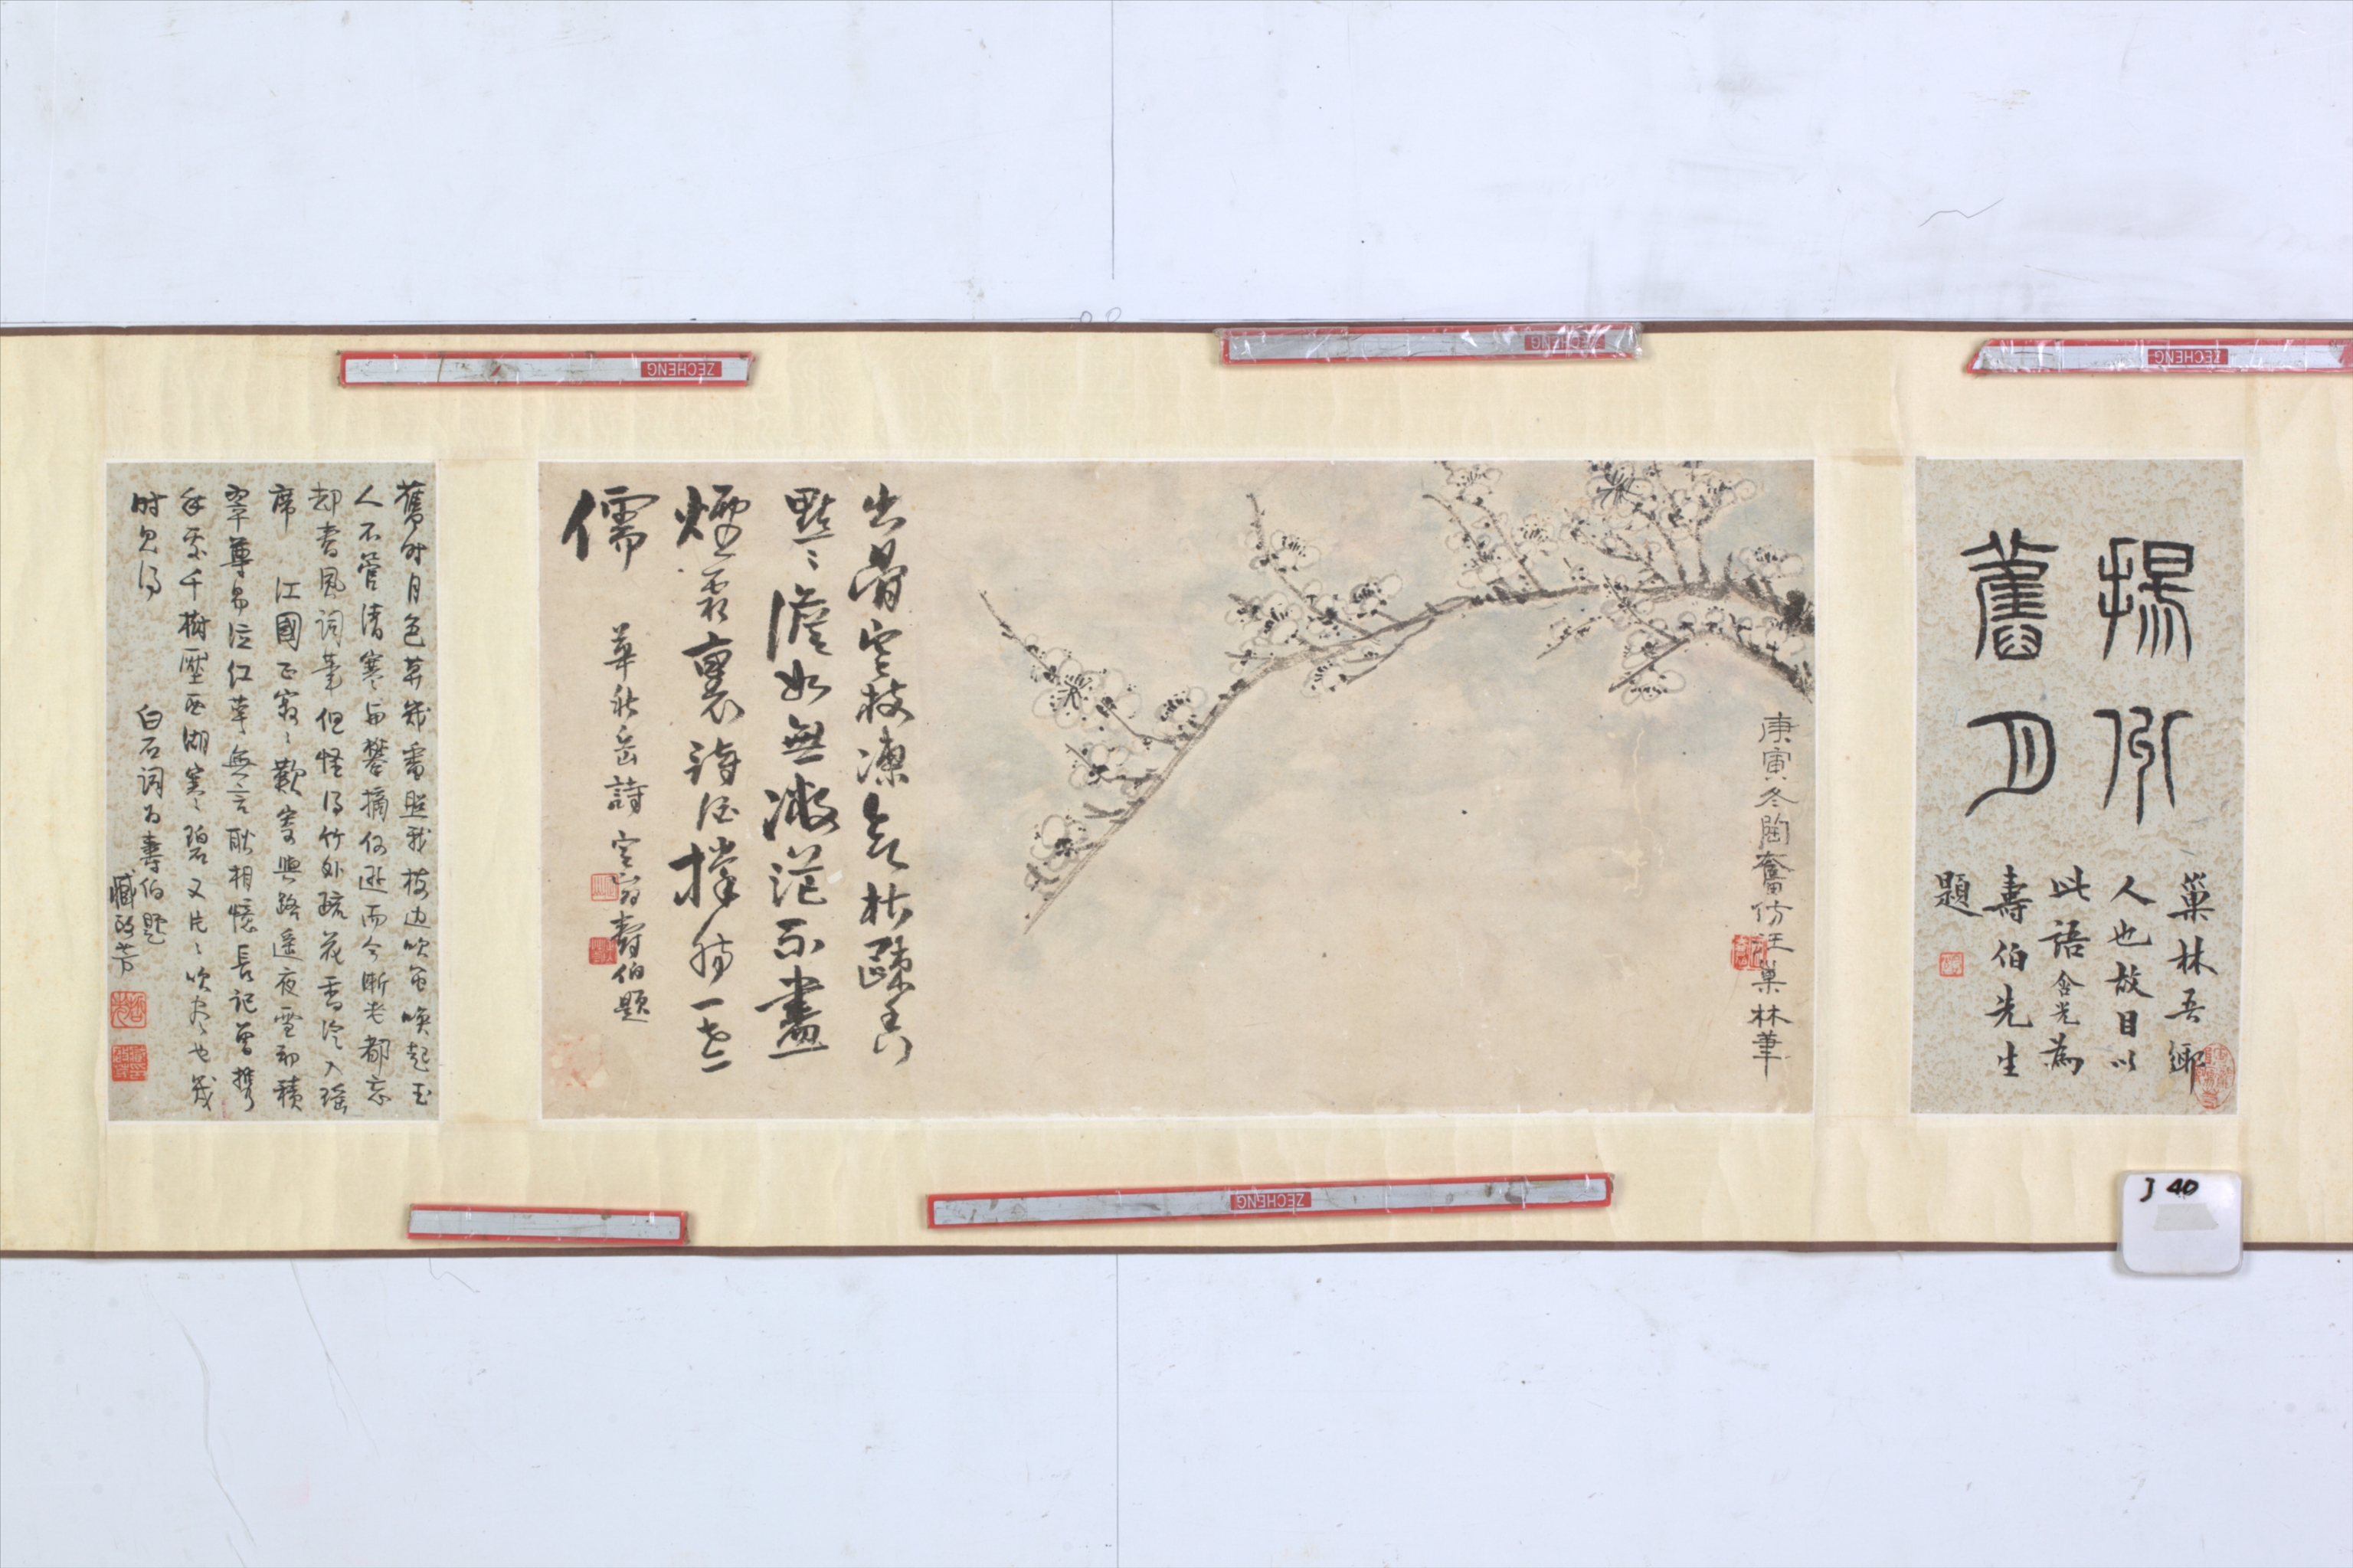 揚州
舊月
巢林吾鄉
人也故目以
此語含光為
壽伯先生
題
庚寅冬陶奮仿汪巢林筆
出骨寒枝凍欲枯疎香
點々澹如無微茫不畫
煙霞裏詩酒撐腸一老
儒 華秋岳詩 壽伯題
舊時月色算幾番照我梅边吹笛喚起玉
人不管清寒與攀摘何遜而今漸老都忘
却春風詞筆但怪得竹外疏花香冷入瑤
席 江國正寂々歎寄與路遙夜雪初積
翠尊易泣紅萼無言耿相憶長記曾攜
手處千樹壓西湖寒碧又片々吹盡也幾
時見得 白石詞為壽伯題
臧啟芳
ZECHENG
ZECHENG
ZECHENG
ZECHENG
J 40